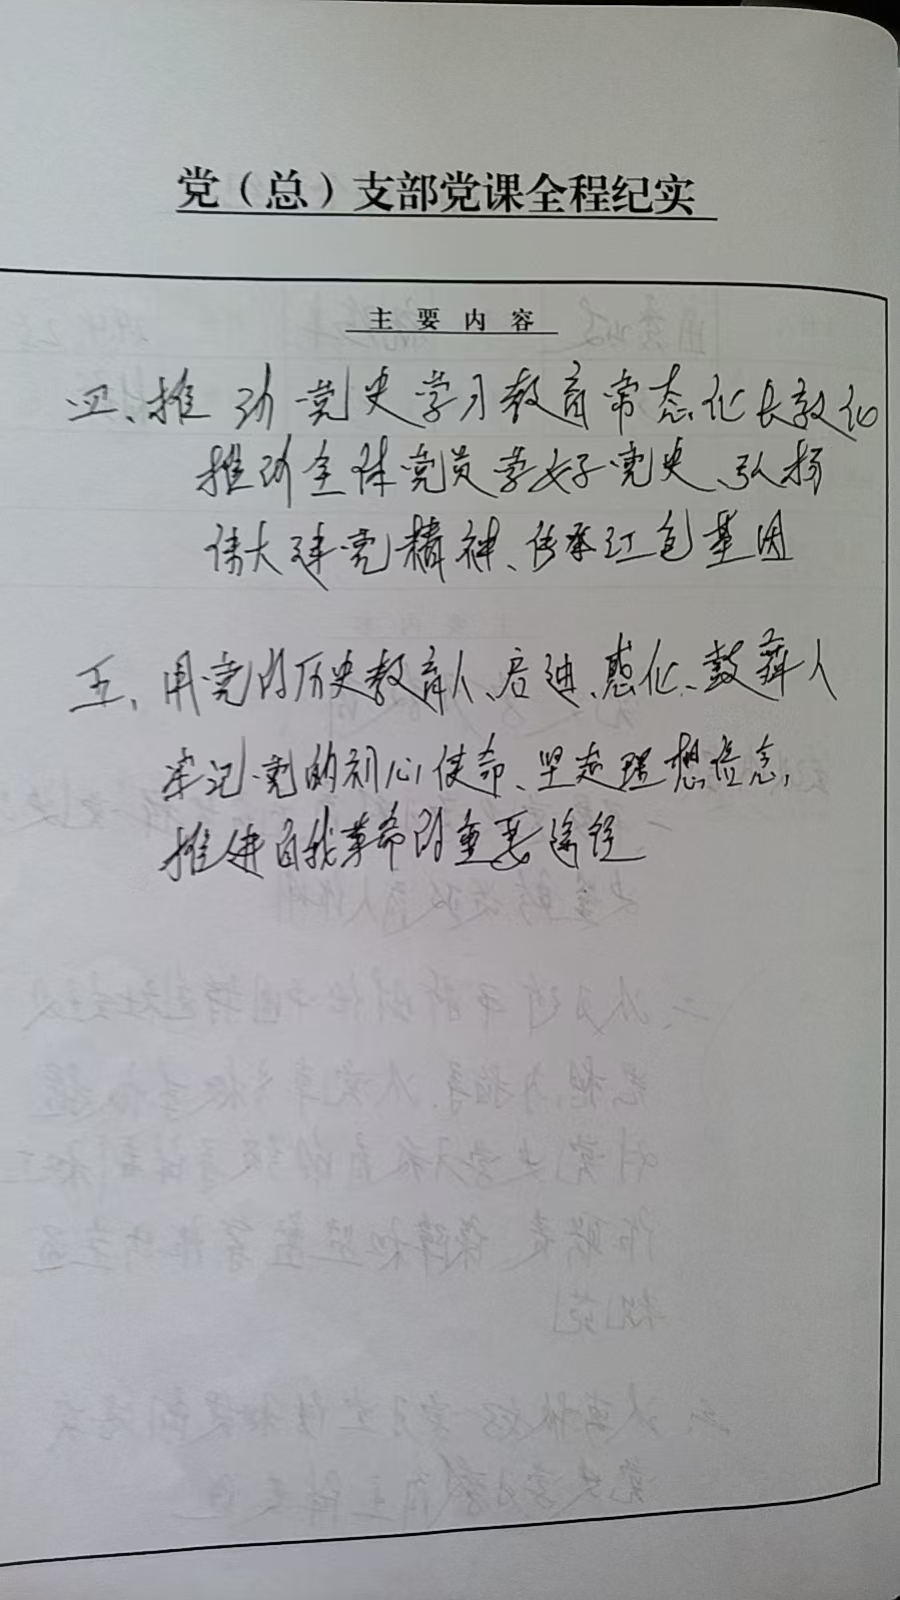 党（总）支部党课全程纪实
主要内容
四、推动党史学习教育常态化长效化
推动全体党员学好党史、弘扬
伟大建党精神、传承红色基因
五、用党的历史教育人、启迪、感化、鼓舞人
牢记党的初心使命、坚定理想信念，
推进自我革命的重要途径